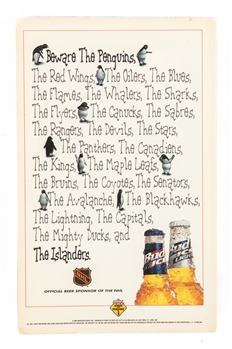 Beware The Penguins,
The Red Wings, The Oilers, The Blues,
The Flames, The Whalers, The Sharks,
The Flyers, The Canucks, The Sabres,
The Rangers, The Devils, The Stars,
The Panthers, The Canadiens,
The Kings, The Maple Leafs,
The Bruins, The Coyotes, The Senators,
The Avalanche, The Blackhawks,
The Lightning, The Capitals,
The Mighty Ducks, and
The Islanders.
NHL
OFFICIAL BEER SPONSOR OF THE NHL
Bud
Ice
Bud
Ice